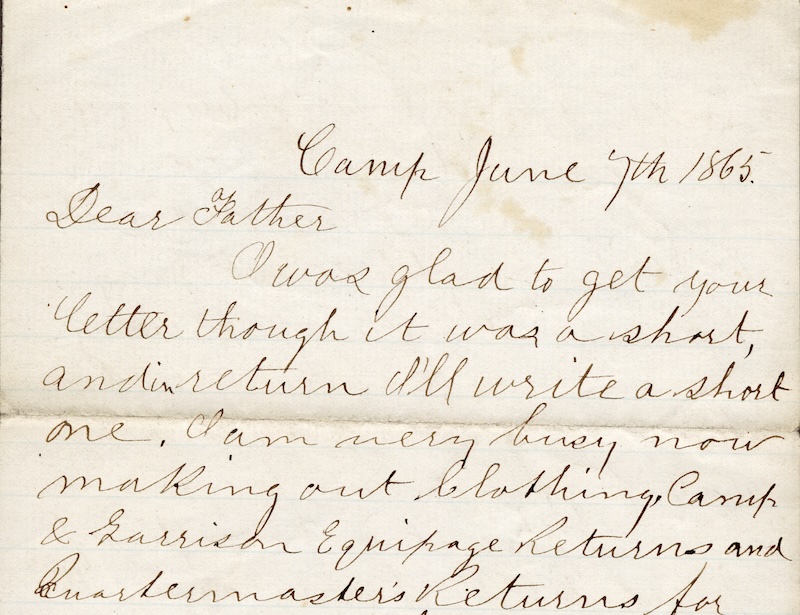 Camp June 7th 1865.
Dear Father
I was glad to get your
letter though it was a short,
and in return I'll write a short
one. I am very busy now
making out Clothing, Camp
& Garrison Equipage Returns and
Quartermaster's Returns for